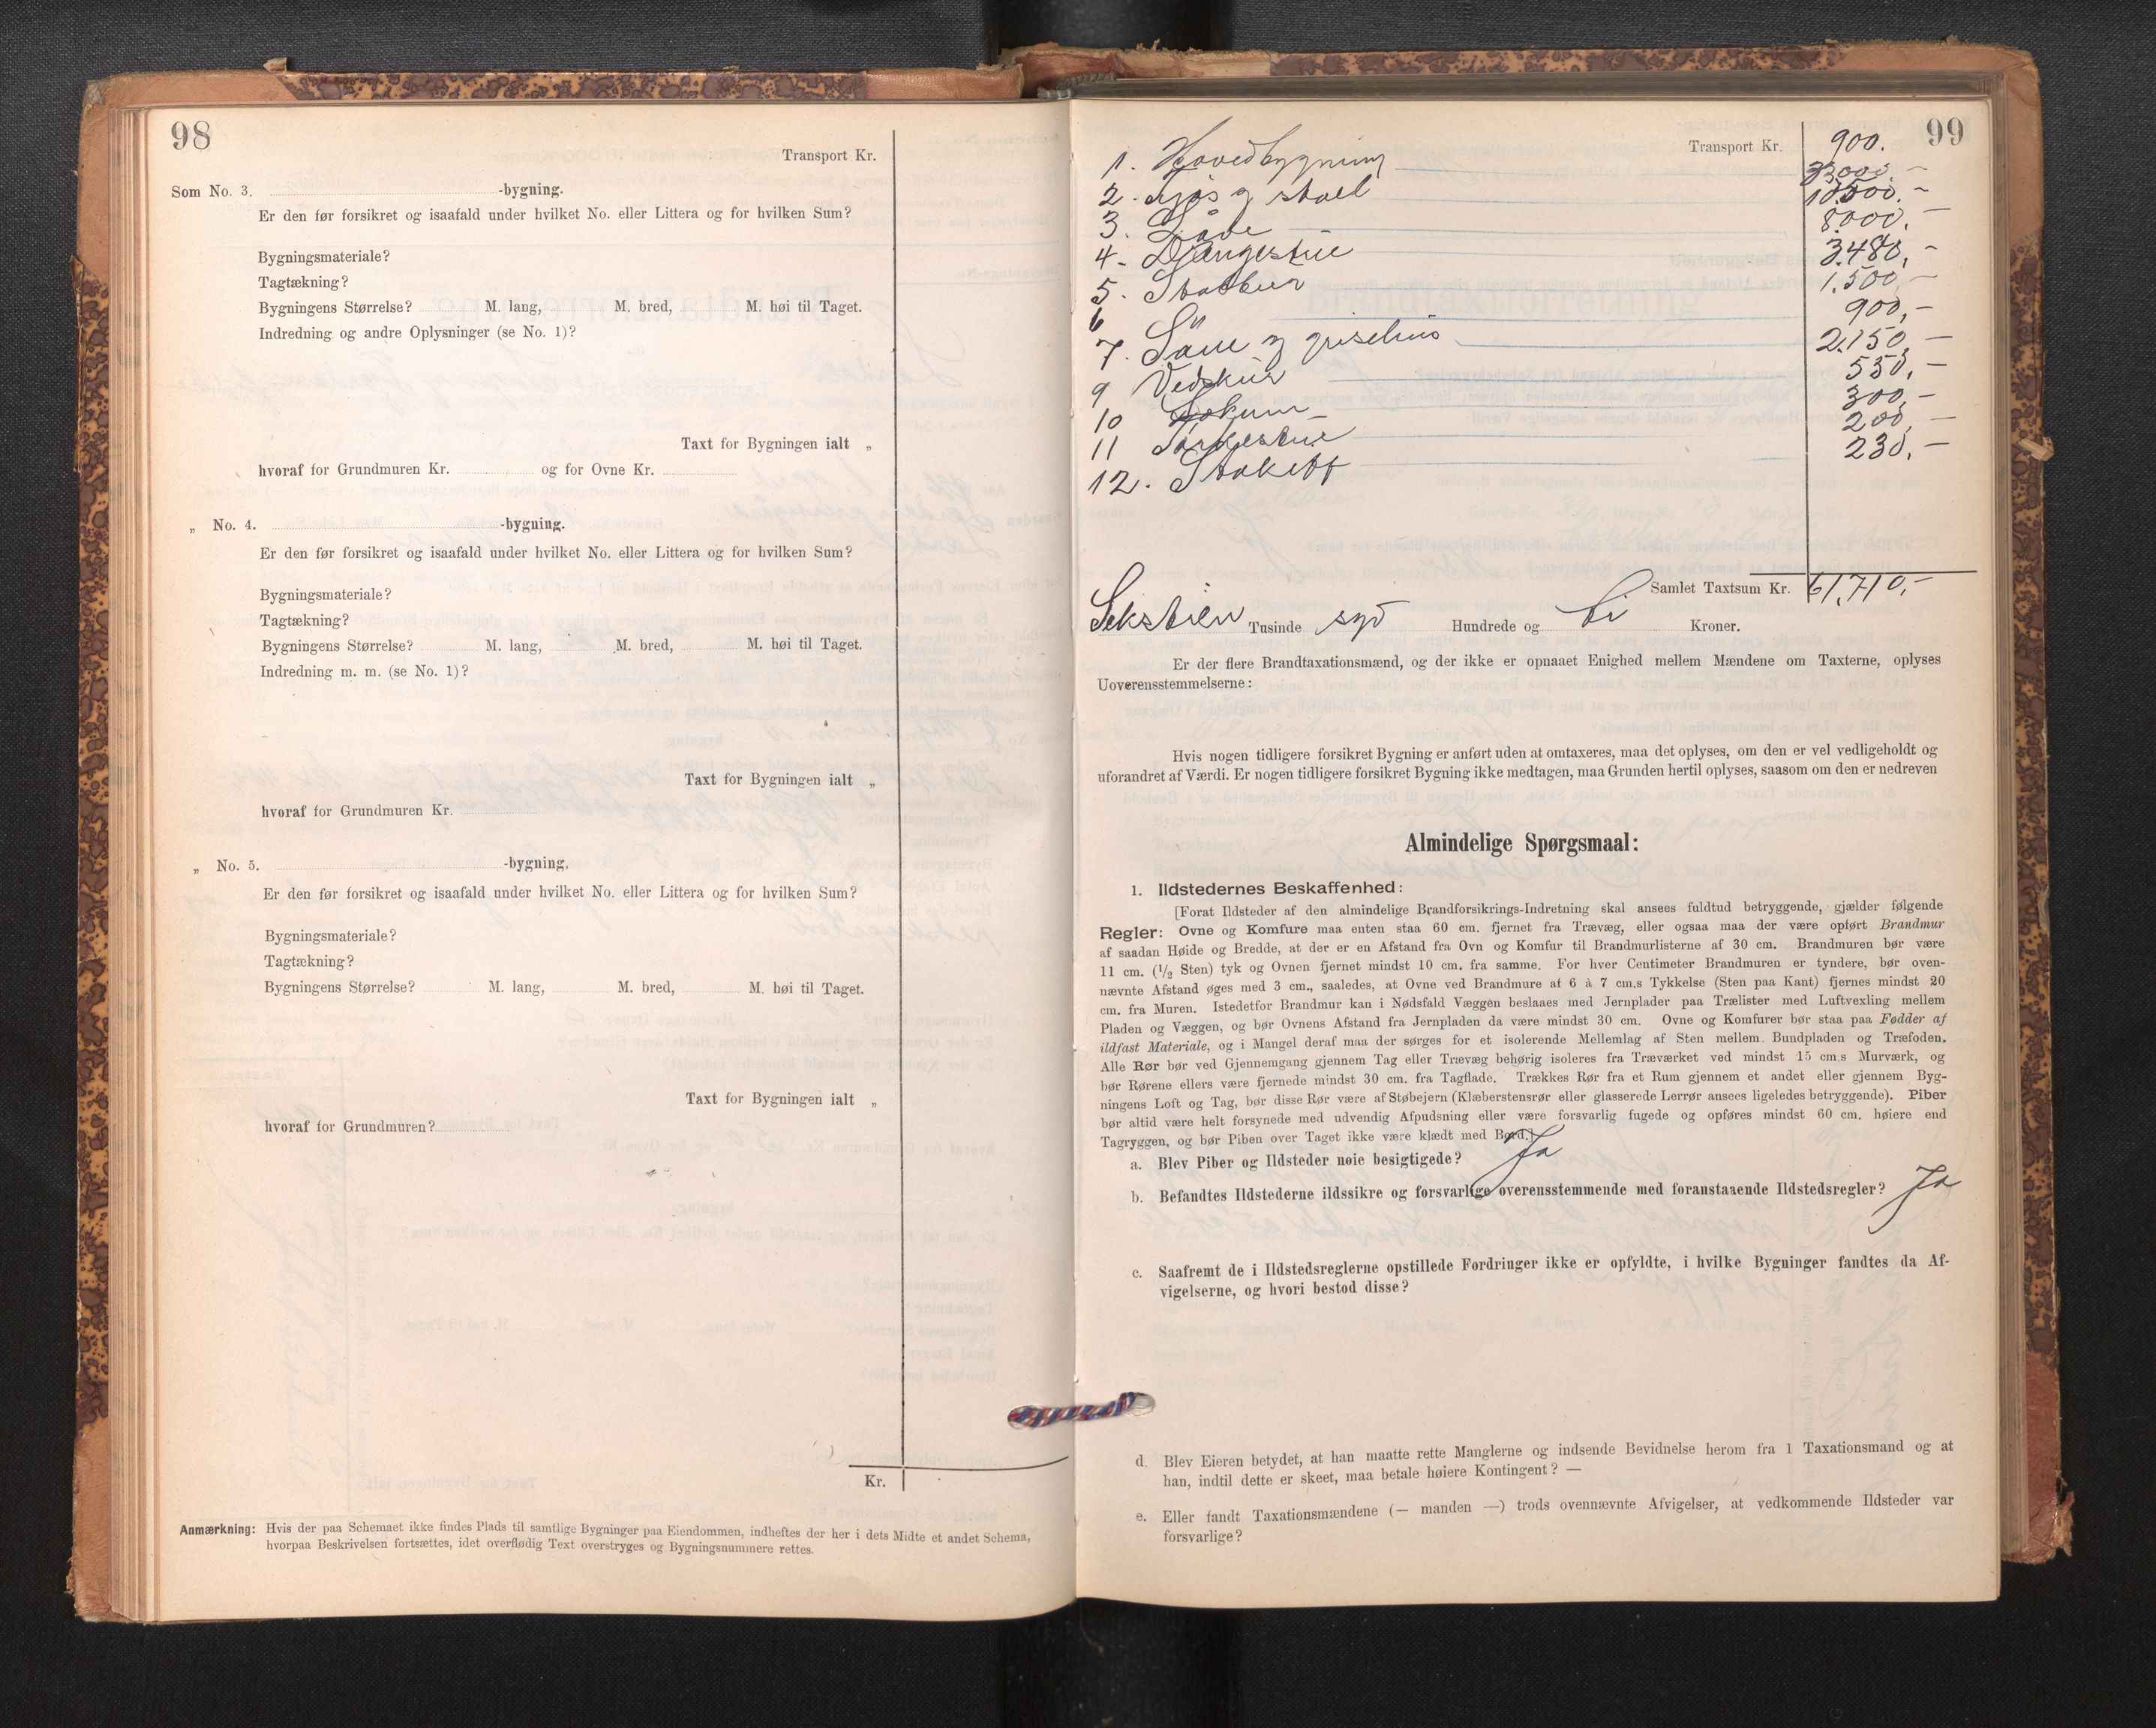 98
Transport Kr.
Som No. 3. -bygning.
Er den før forsikret og isaafald under hvilket No. eller Littera og for hvilken Sum?
Bygningsmateriale?
Tagtækning?
Bygningens Størrelse? M. lang, M. bred, M. høi til Taget.
Indredning og andre Oplysninger (se No. 1)?
Taxt for Bygningen ialt „
hvoraf for Grundmuren Kr. og for Ovne Kr.
„ No. 4. -bygning.
Er den før forsikret og isaafald under hvilket No. eller Littera og for hvilken Sum?
Bygningsmateriale?
Tagtækning?
Bygningens Størrelse? M. lang, M. bred, M. høi til Taget.
Indredning m. m. (se No. 1)?
Taxt for Bygningen ialt „
hvoraf for Grundmuren Kr.
„ No. 5. -bygning.
Er den før forsikret og isaafald under hvilket No. eller Littera og for hvilken Sum?
Bygningsmateriale?
Tagtækning?
Bygningens Størrelse? M. lang, M. bred, M. høi til Taget.
Taxt for Bygningen ialt „
hvoraf for Grundmuren?
Kr.
Anmærkning: Hvis der paa Schemaet ikke findes Plads til samtlige Bygninger paa Eiendommen, indheftes der her i dets Midte et andet Schema,
hvorpaa Beskrivelsen fortsættes, idet overflødig Text overstryges og Bygningsnummere rettes.
99
Transport Kr. 900.
1. Hovedbygning 33000.-
2. Fjøs og stall 10.500.-
3. Løve 8.000,-
4. Drengestue 3.480,-
5. Stabbur 1.500,-
6 " 900,-
7. Saue og grisehus 2.150,-
9 Vedskur 550,-
10 300,-
11 200,-
12. 230,-
Samlet Taxtsum Kr. 61,710,-
Sekstien Tusinde syv Hundrede og ti Kroner.
Er der flere Brandtaxationsmænd, og der ikke er opnaaet Enighed mellem Mændene om Taxterne, oplyses
Uoverensstemmelserne:
Hvis nogen tidligere forsikret Bygning er anført uden at omtaxeres, maa det oplyses, om den er vel vedligeholdt og
uforandret af Værdi. Er nogen tidligere forsikret Bygning ikke medtagen, maa Grunden hertil oplyses, saasom om den er nedreven
Almindelige Spørgsmaal:
1. Ildstedernes Beskaffenhed:
[Forat Ildsteder af den almindelige Brandforsikrings-Indretning skal ansees fuldtud betryggende, gjælder følgende
Regler: Ovne og Komfure maa enten staa 60 cm. fjernet fra Trævæg, eller ogsaa maa der være opført Brandmur
af saadan Høide og Bredde, at der er en Afstand fra Ovn og Komfur til Brandmurlisterne af 30 cm. Brandmuren bør være
11 cm. (1/2 Sten) tyk og Ovnen fjernet mindst 10 cm. fra samme. For hver Centimeter Brandmuren er tyndere, bør oven-
nævnte Afstand øges med 3 cm., saaledes, at Ovne ved Brandmure af 6 à 7 cm.s Tykkelse (Sten paa Kant) fjernes mindst 20
cm. fra Muren. Istedetfor Brandmur kan i Nødsfald Væggen beslaaes med Jernplader paa Trælister med Luftvexling mellem
Pladen og Væggen, og bør Ovnens Afstand fra Jernpladen da være mindst 30 cm. Ovne og Komfurer bør staa paa Fødder af
ildfast Materiale, og i Mangel deraf maa der sørges for et isolerende Mellemlag af Sten mellem Bundpladen og Træfoden.
Alle Rør bør ved Gjennemgang gjennem Tag eller Trævæg behørig isoleres fra Træværket ved mindst 15 cm.s Murværk, og
bør Rørene ellers være fjernede mindst 30 cm. fra Tagflade. Trækkes Rør fra et Rum gjennem et andet eller gjennem Byg-
ningens Loft og Tag, bør disse Rør være af Støbejern (Klæberstensrør eller glasserede Lerrør ansees ligeledes betryggende). Piber
bør altid være helt forsynede med udvendig Afpudsning eller være forsvarlig fugede og opføres mindst 60 cm. høiere end
Tagryggen, og bør Piben over Taget ikke være klædt med Bord.]
a. Blev Piber og Ildsteder nøie besigtigede? Ja
b. Befandtes Ildstederne ildssikre og forsvarlige overensstemmende med foranstaaende Ildstedsregler? Ja
c. Saafremt de i Ildstedsreglerne opstillede Fordringer ikke er opfyldte, i hvilke Bygninger fandtes da Af-
vigelserne, og hvori bestod disse?
d. Blev Eieren betydet, at han maatte rette Manglerne og indsende Bevidnelse herom fra 1 Taxationsmand og at
han, indtil dette er skeet, maa betale høiere Kontingent? —
e. Eller fandt Taxationsmændene (— manden —) trods ovennævnte Afvigelser, at vedkommende Ildsteder var
forsvarlige?